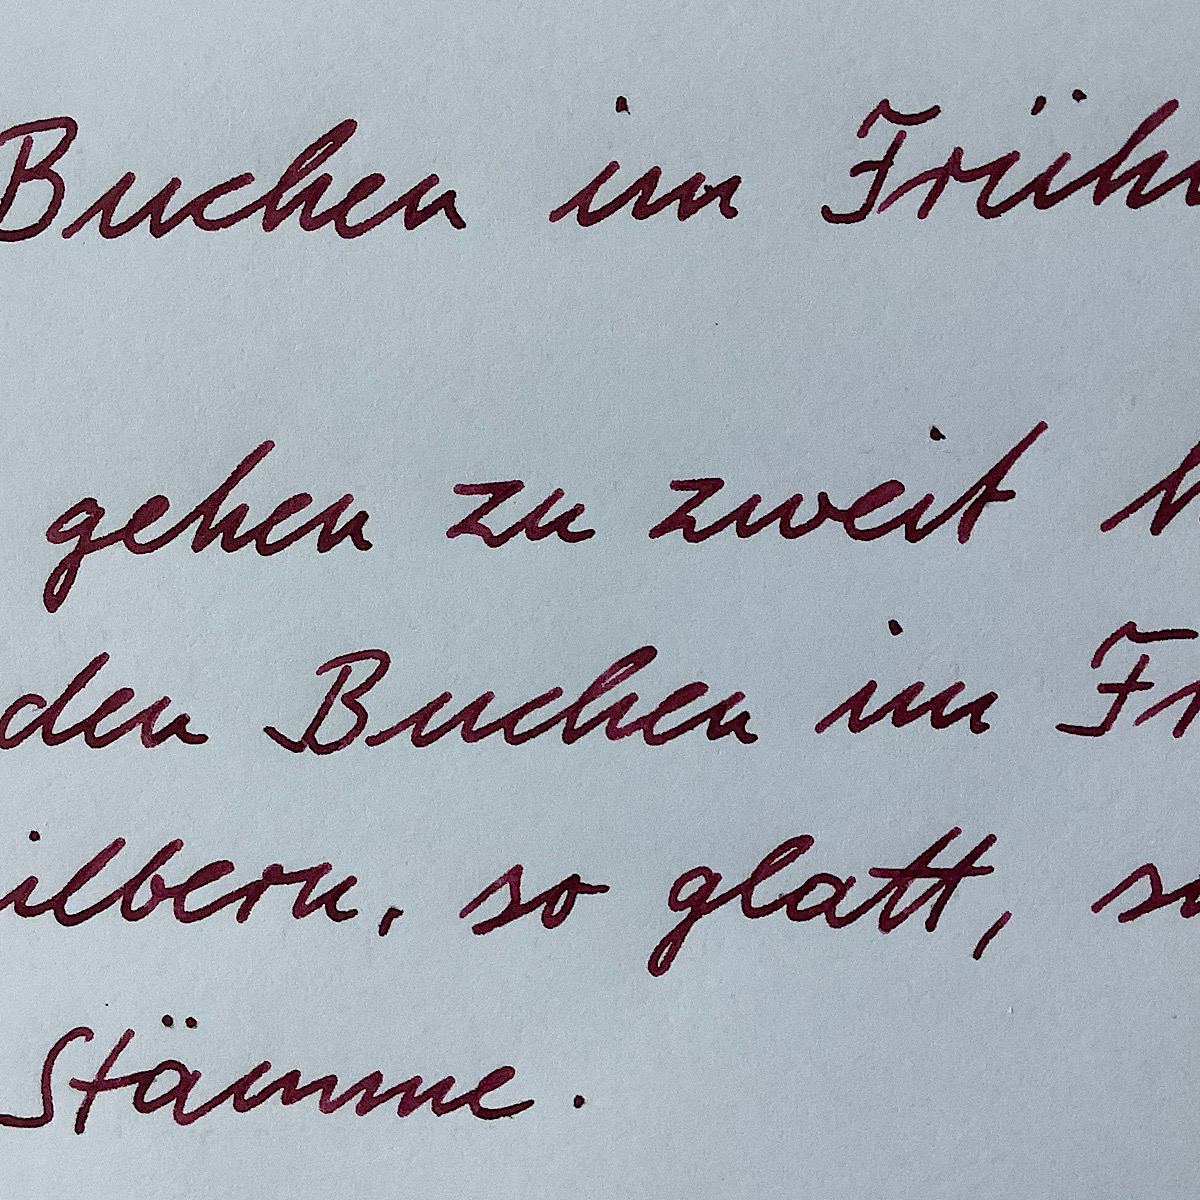 Buchen im Früh
gehen zu zweit
den Buchen im Fr
ilbern, so glatt, so
Stämme.